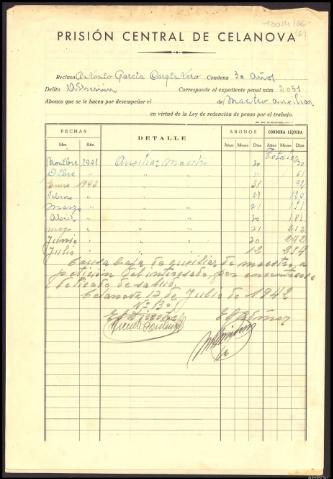 PRISIÓN CENTRAL DE CELANOVA
Recluso Antonio García Condena 30 Años
Delito Corresponde el expediente penal núm. 2051
Abonos que se le hacen por desempeñar el de Maestro auxiliar
en virtud de la Ley de redención de penas por el trabajo.
FECHAS DETALLE ABONOS CONDENA LÍQUIDA
Mes Año Años Meses Días Años Meses Días
1941 Auxiliar Maestro 30
" " 31 61
Enero 1942 " 31
Febrero " "
Marzo " " 31
Abril " " 30 181
mayo " " 31 212
Junio " " 30 242
Julio " " 12 254
Causa baja de auxiliar de maestro, a
petición del interesado, por encontrarse
delicado de salud.
Celanova 12 de Julio de 1942
Vº Bº
El Director